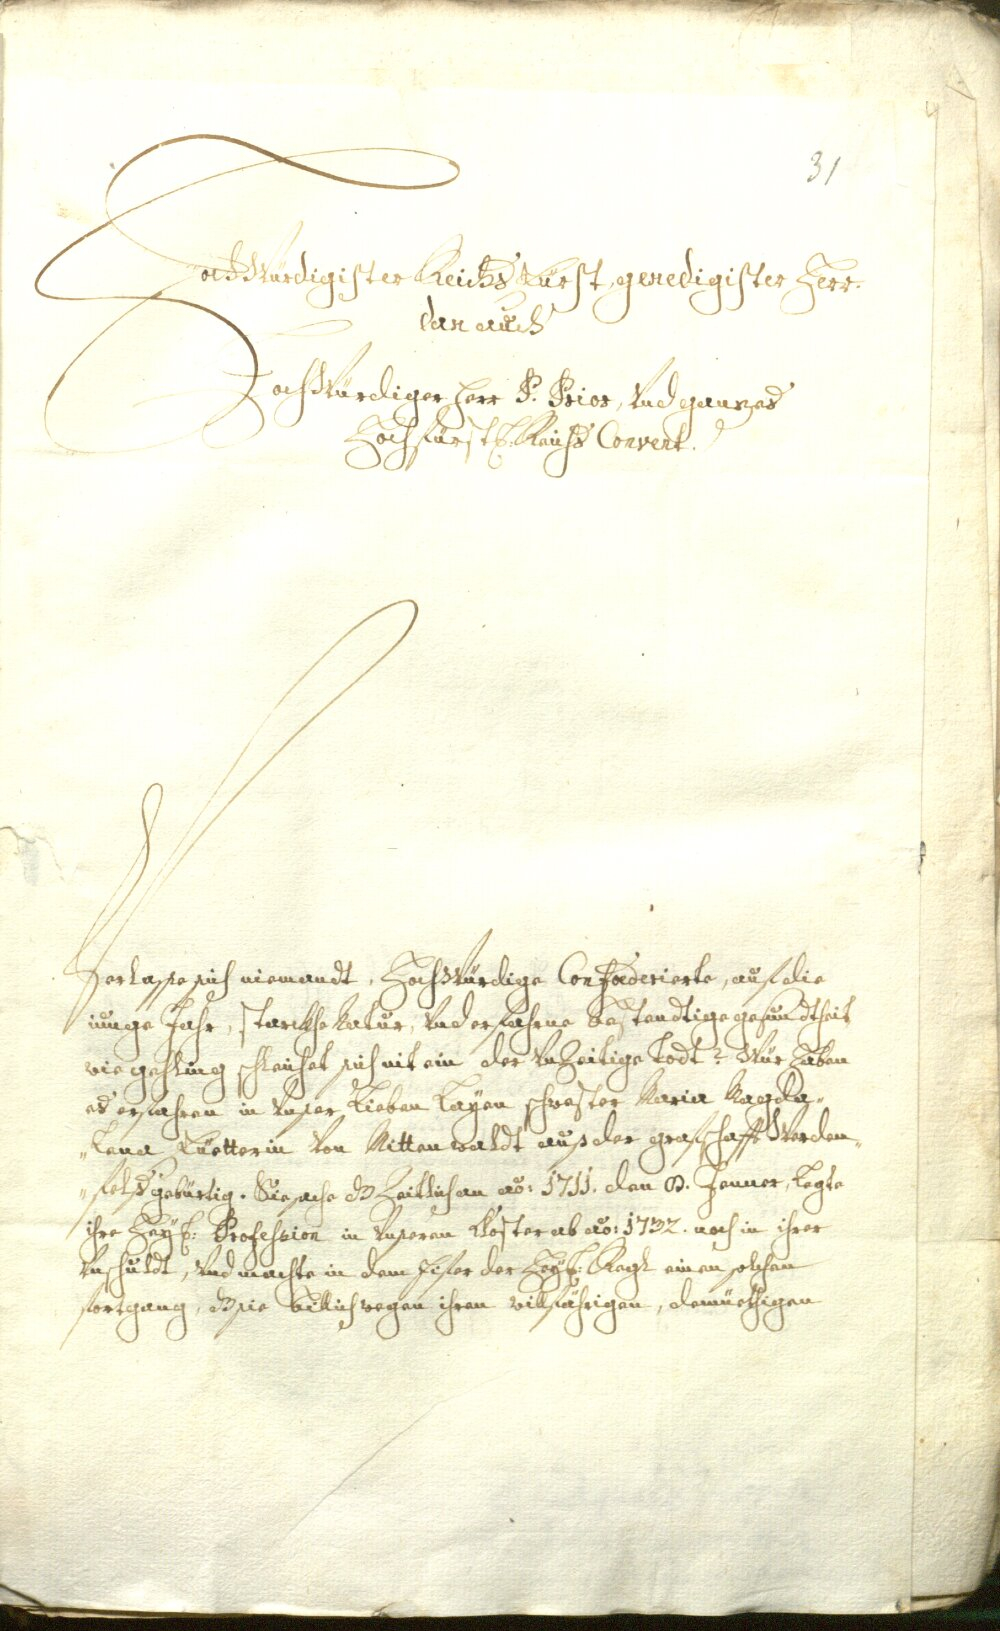 31
HochWürdigister Reichs Fürst, genedigister Herr.
dan auch
HochWürdiger Herr P. Prior, Vnd ganzes
Hochfürstl: Reichs Convent.
Verlasse sich niemandt, HochWürdige Confoederierte, auf die
iunge Jahr, starckhe Natur, Vnd erfahrne bestendtige gesundtheit
wie gehling schleichet sich nit ein der Vnzeitige Todt? Wür haben
es erfahren in Vnser Lieben Layen schwester Maria Magda„
„lena Tüetterin Von Mittenwaldt auß der graffschafft Werden„
„fels gebürtig. Sie sache dz Zeitlich an ao: 1711. den 8. Jenner, Legte
ihre Heyl: Profession in Vnseren Closter ab ao: 1732. noch in ihrer
Vnschuldt, Vnd machte in dem Eifer der Heyl: Regl einen solchen
fortgang, dz sie billich wegen ihren willfährigen, demüethigen